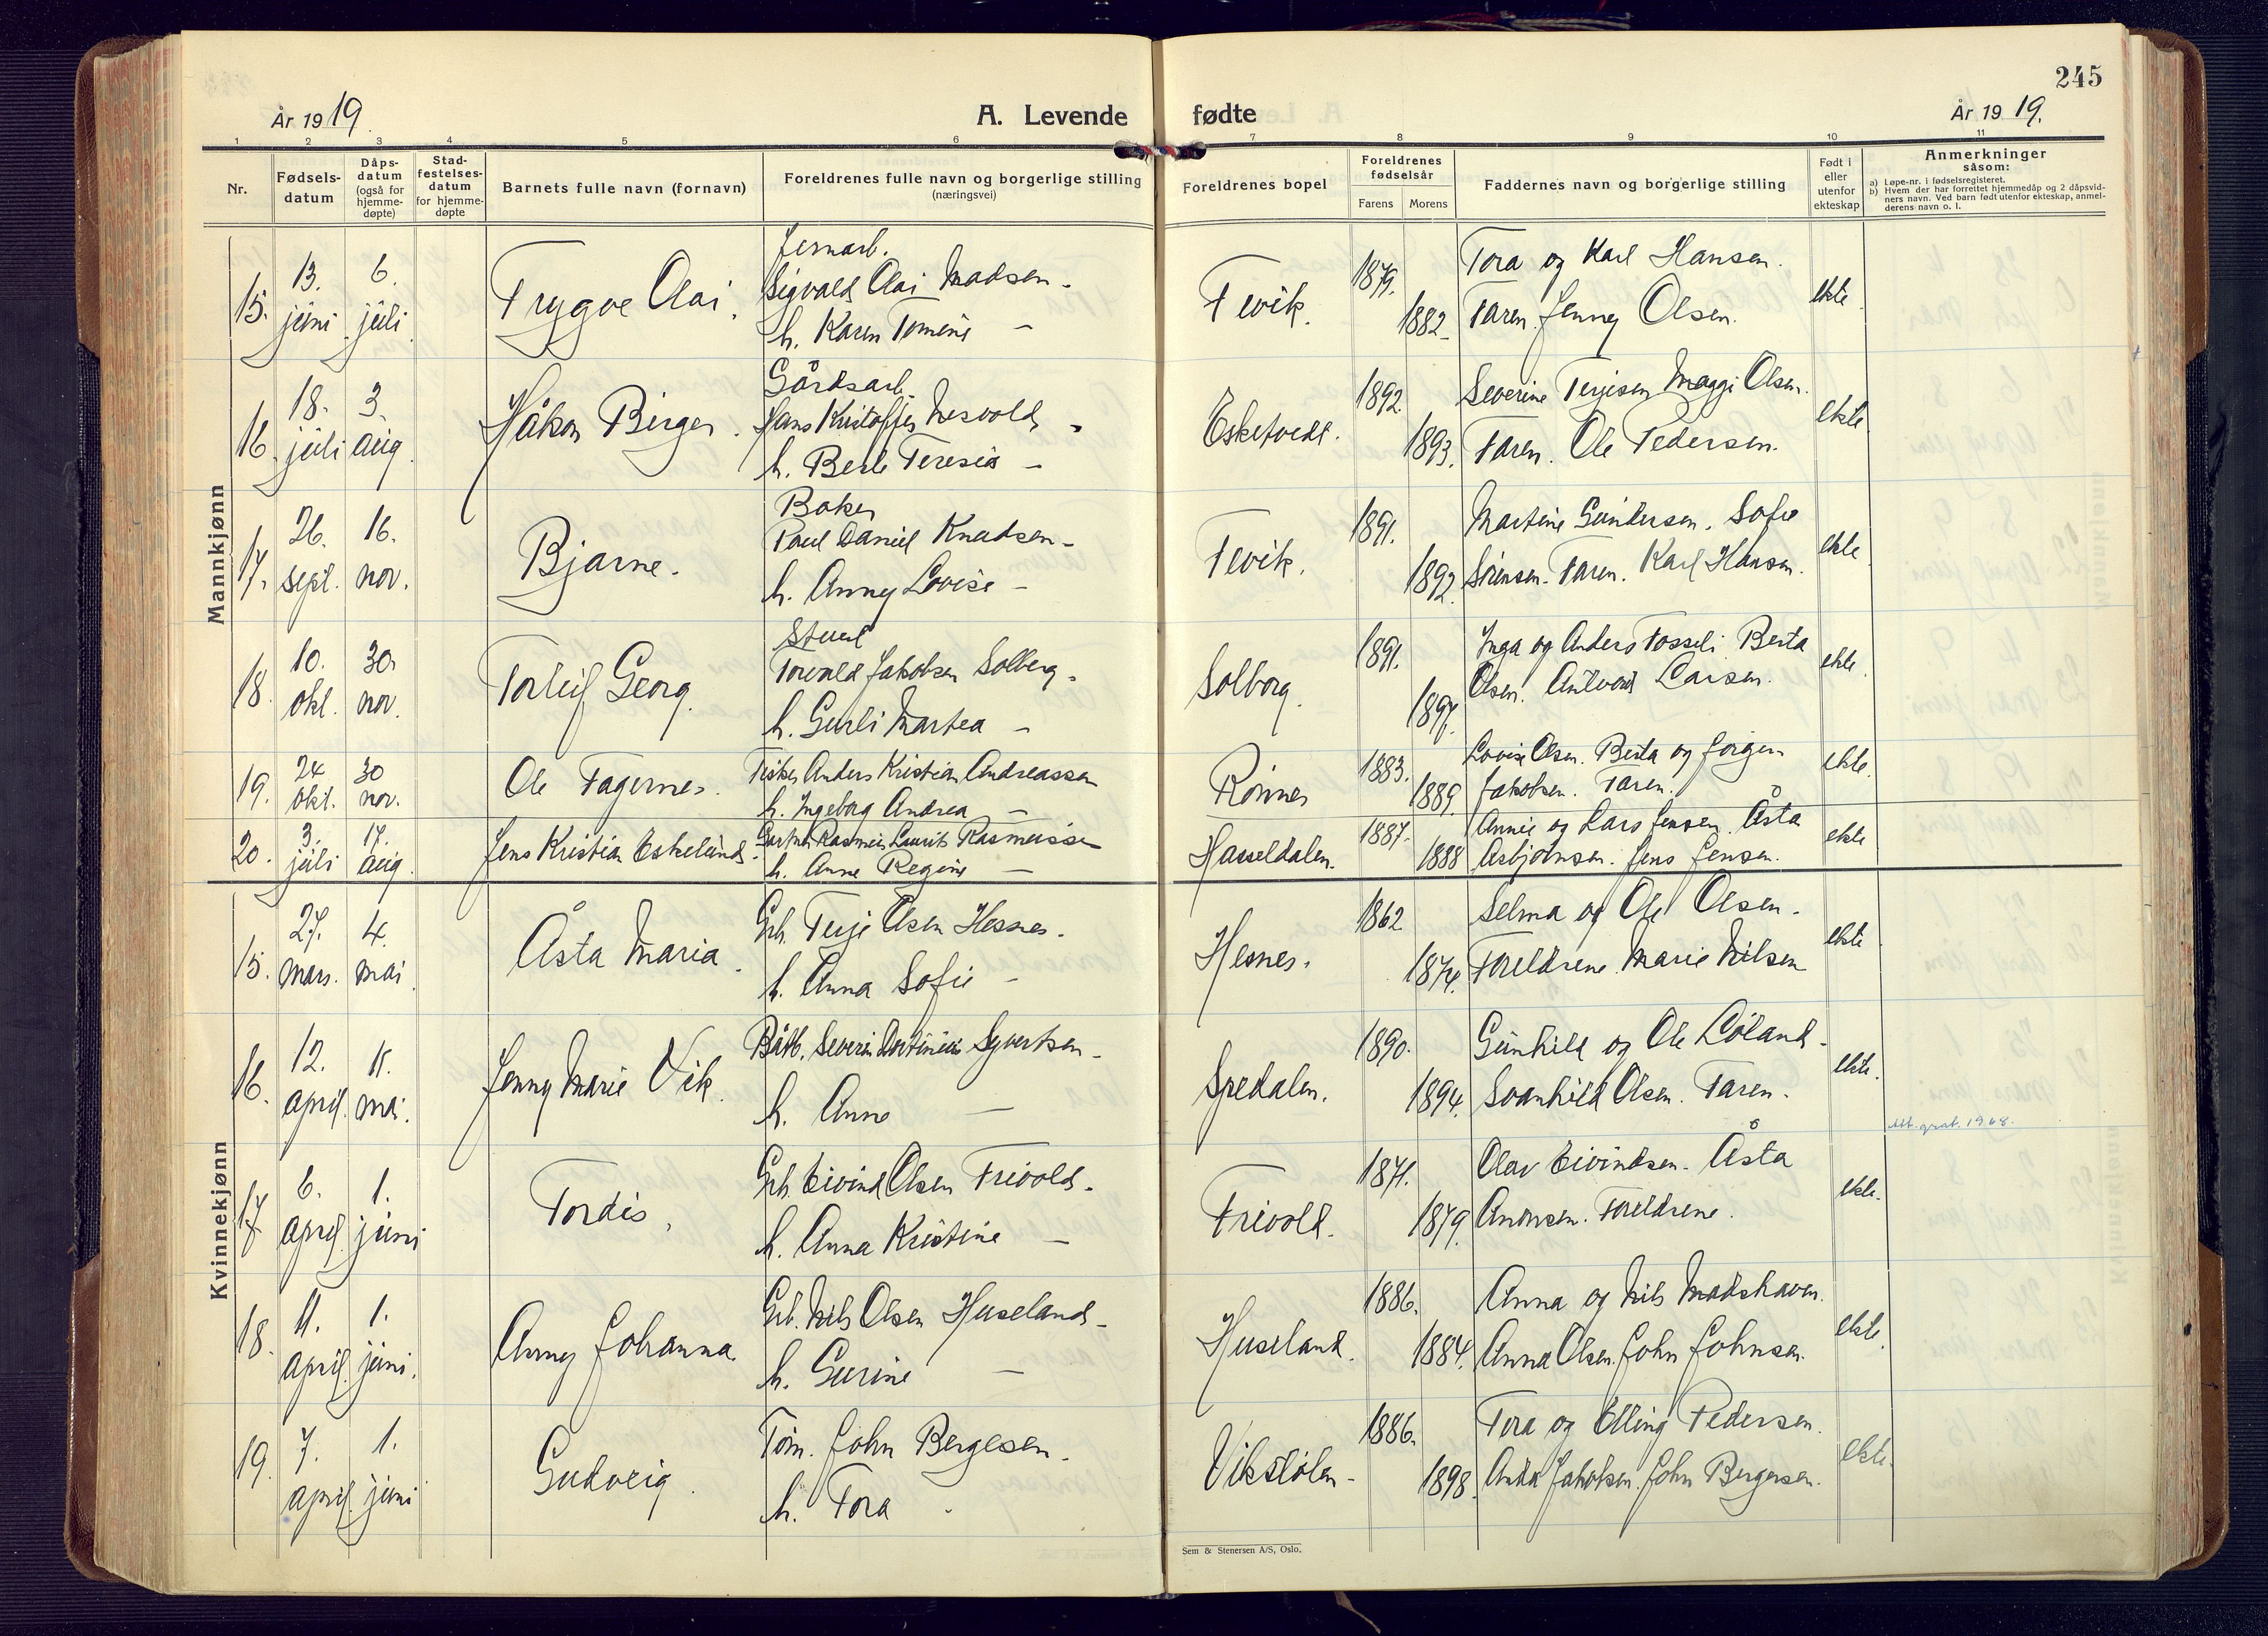 245
År 1919.
A. Levende fødte
År 1919.
1 2 3 4 5 6 7 8 9 10 11
Nr.
Fødsels-
datum
Dåps-
datum
(også for
hjemme-
døpte)
Stad-
festelses-
datum
for hjemme-
døpte
Barnets fulle navn (fornavn)
Foreldrenes fulle navn og borgerlige stilling
(næringsvei)
Foreldrenes bopel
Foreldrenes
fødselsår
Farens Morens
Faddernes navn og borgerlige stilling
Født i
eller
utenfor
ekteskap
Anmerkninger
såsom:
a) Løpe-nr. i fødselsregisteret.
b) Hvem der har forrettet hjemmedåp og 2 dåpsvid-
ners navn. Ved barn født utenfor ekteskap, anmel-
derens navn o. l.
Mannkjønn
15. 13. juni 6. juli Trygve Olai.
Jernarb.
Sigvald Olai Madsen -
h. Karen Tomine -
Fevik. 1879. 1882
Tora og Karl Hansen.
Faren. Jenny Olsen.
ekte
16. 18. juli 3. aug. Håkon Birger.
Gårdsarb.
Hans Kristoffer Nesvold -
h. Berte Teresia -
Eskefvedt. 1892. 1893.
Severine Terjesen Maggi Olsen.
Faren. Ole Pedersen.
ekte
17. 26. sept. 16. nov. Bjarne.
Baker
Paul Daniel Knudsen -
h. Anny Lovise -
Fevik. 1891. 1892.
Martine Gundersen. Sofie
Sørensen. Faren. Karl Hansen.
ekte
18. 10. okt. 30. nov. Torleif Georg.
Stuert
Torvald Jakobsen Solberg -
h. Gurli Martea -
Solborg. 1891. 1897.
Inga og Anders Fosseli Berta
Olsen. Larsen.
ekte
19. 24. okt. 30 nov. Ole Fagernes.
Fisker Anders Kristian Andreassen
h. Ingeborg Andrea -
Rønnes 1883. 1889.
Lovise Olsen. Berta og Jørgen
Jakobsen. Faren.
ekte.
20. 3. juli 17. aug. Jens Kristian Eskelund.
Gartner Rasmus Laurits Rasmussen
h. Anne Regine -
Hasseldalen. 1887. 1888
Annie og Lars Jensen. Åsta
Asbjørnsen. Jens Jensen.
ekte
Kvinnekjønn
15. 27. mars. 4. mai Åsta Maria.
Grb. Terje Olsen Hesnes -
h. Anna Sofie -
Hesnes. 1862 1874.
Selma og Ole Olsen.
Foreldrene. Marie Nilsen
ekte
16. 12. april. 11. mai. Jenny Marie Vik.
Båtb. Severin Syvertsen -
h. Anne -
Spedalen. 1890. 1894.
Gunhild og Ole Løland.
Svanhild Olsen. Faren.
ekte.
Att. grat. 1968.
17 6. april. 1. juni Tordis.
Grb. Eivind Olsen Frivold -
h. Anna Kristine -
Frivold. 1871. 1879.
Olav Eivindsen. Åsta
Andersen. Foreldrene.
ekte.
18. 11. april. 1. juni. Anny Johanna.
Grb. Nils Olsen Huseland -
h. Gurine -
Huseland. 1886. 1884.
Anna og Nils Madshaven.
Anna Olsen. John Johnsen.
ekte.
19. 7. april. 1. juni Gudveig.
Tøm. John Bergesen -
h. Tora -
Vikstølen. 1886. 1898.
Tora og Elling Pedersen.
Anna Jakobsen. John Bergersen.
ekte.
Sem & Stenersen A/S, Oslo.